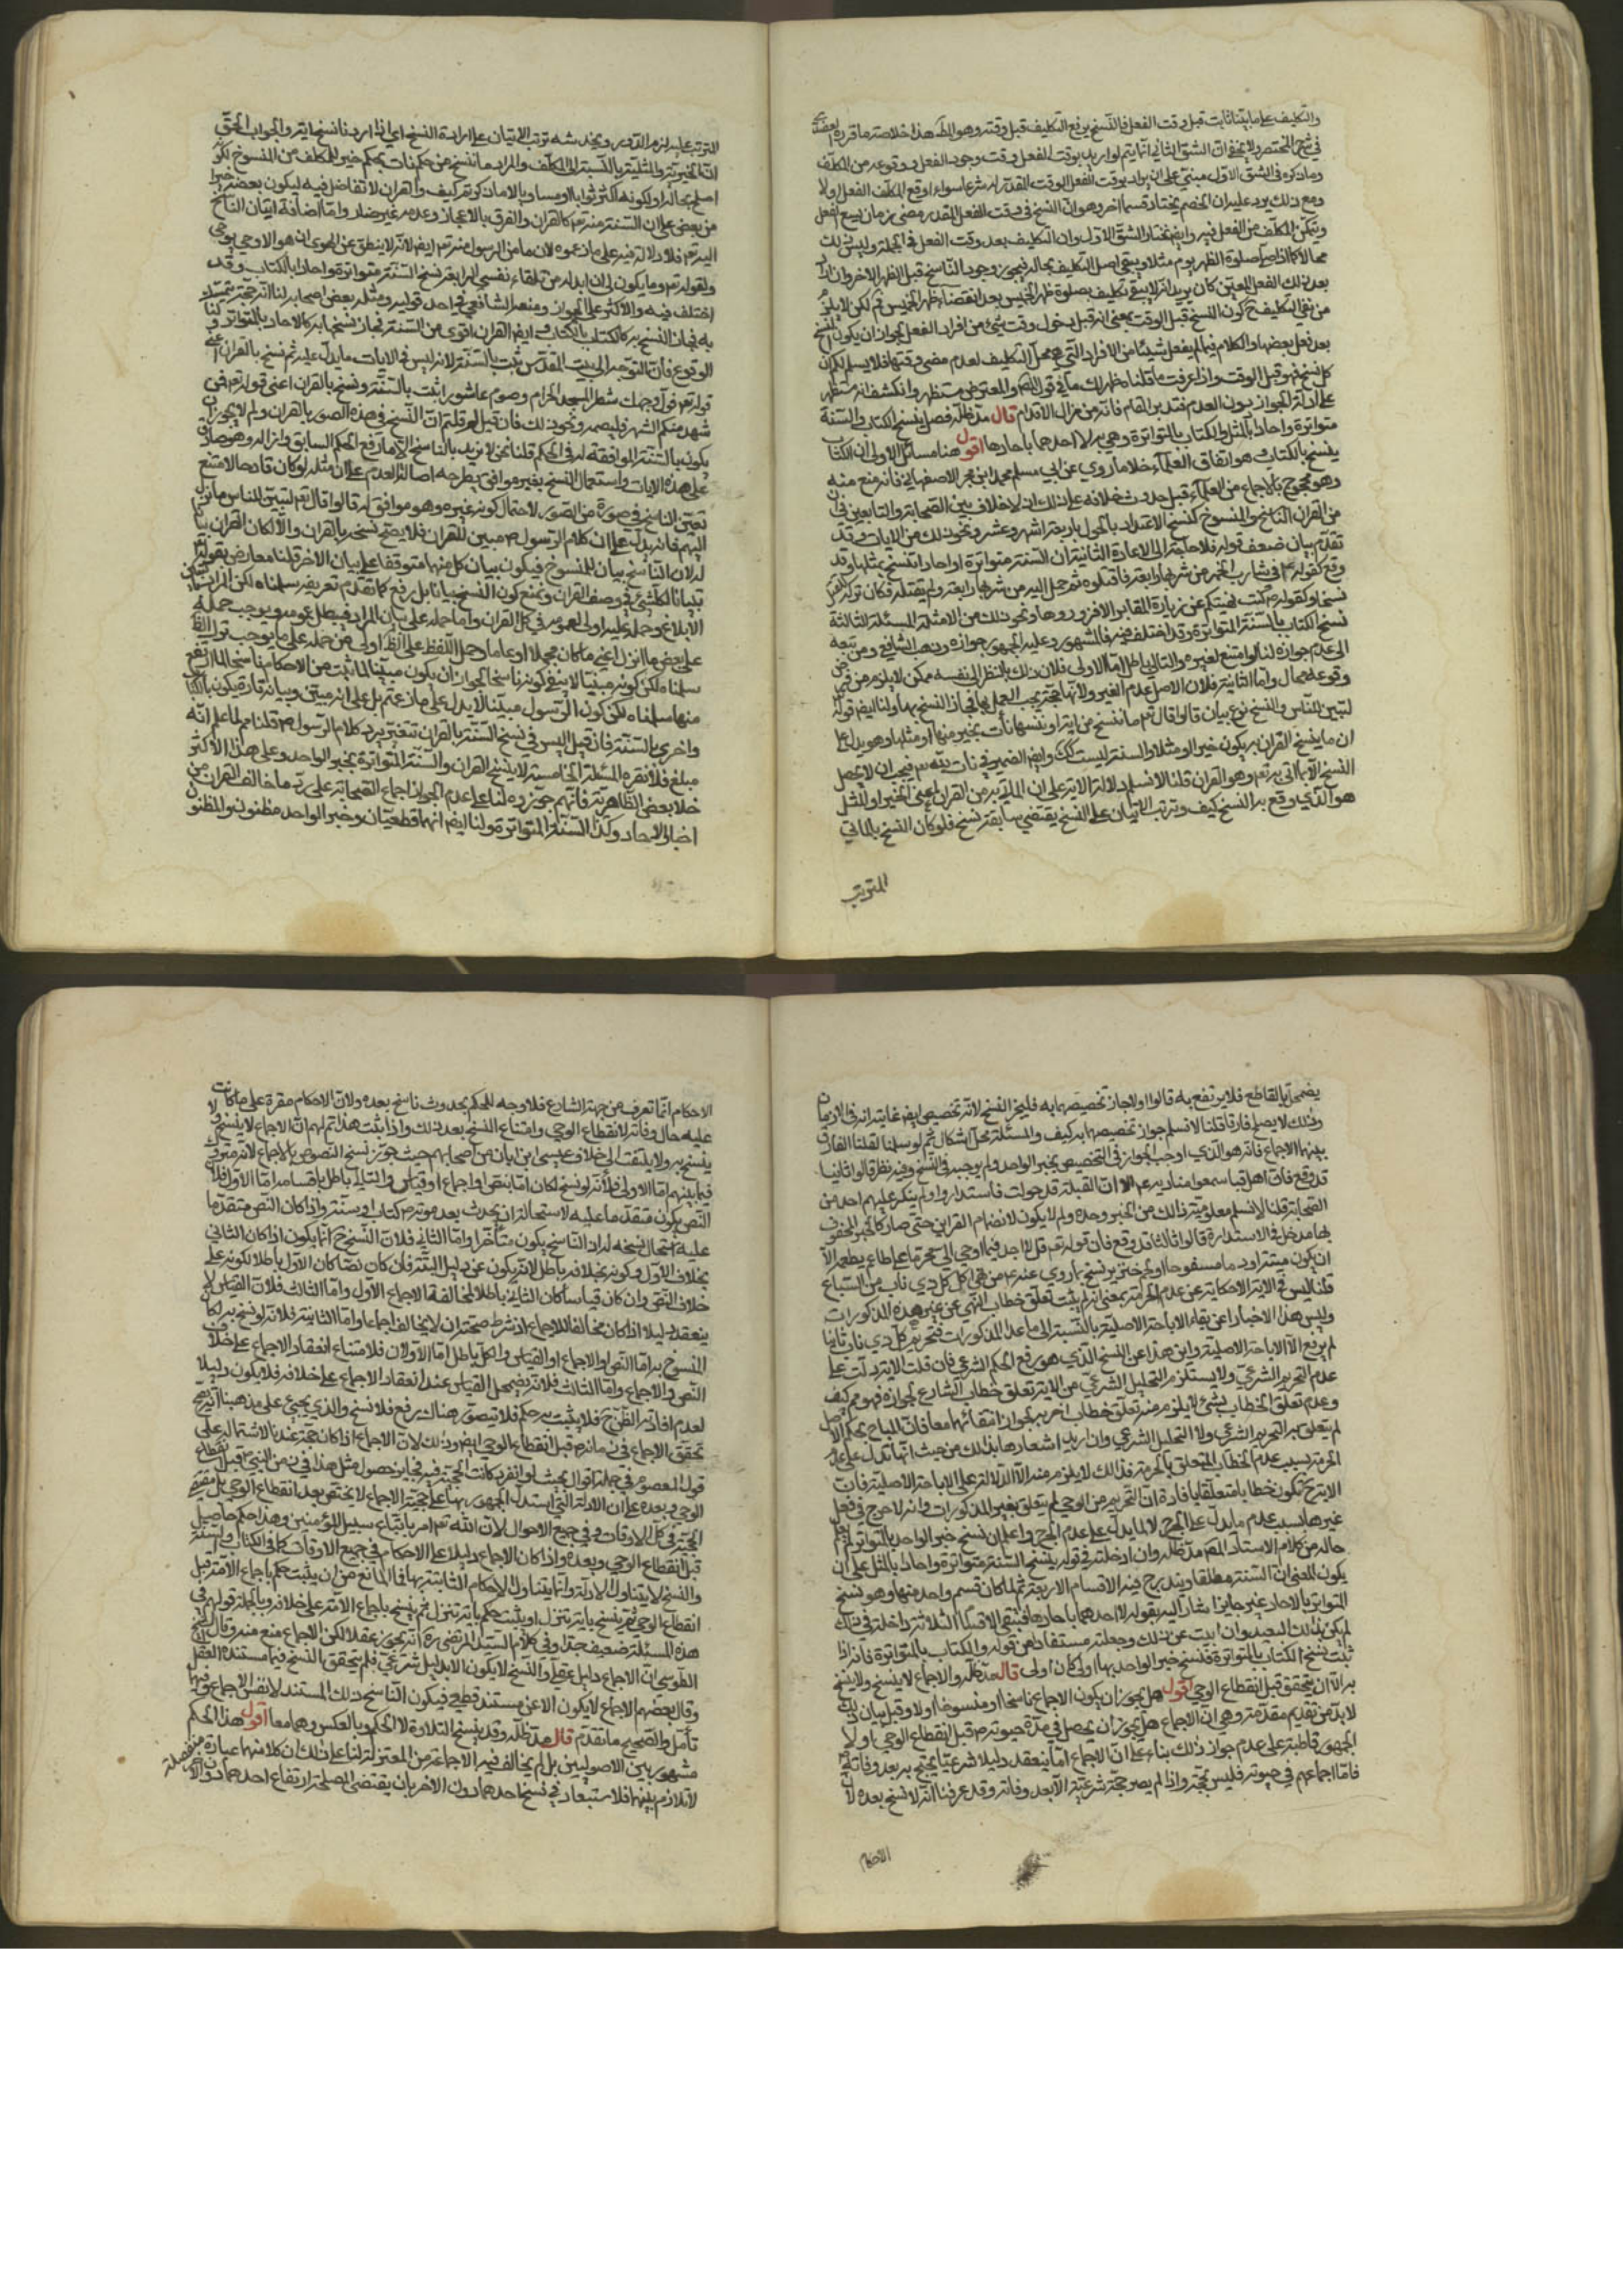 والتكليف على ما بيّنا ثابت قبل وقت الفعل فالنسخ يرفع التكليف قبل وقته وهو المط هذا خلاصة ما قرره العضدي
في شرح المختصر ولا يخفى ان الشق الثاني انما يتم لو اريد بوقت الفعل وقت وجود الفعل ووقوعه من المكلف
وما ذكره في الشق الاول مبني على ان يراد بوقت الفعل الوقت المقدر له شرعا سواء اوقع المكلف الفعل او لا
ومع ذلك يرد عليه ان الخصم يختار قسما اخر وهو ان النسخ في وقت الفعل المقدر مضى زمان يسع الفعل
ويتمكن المكلف من الفعل فيه وايض نختار الشق الاول وان التكليف بعد وقت الفعل في الجملة وليس ذلك
محالا كما اذا صلى صلوة الظهر يوم مثلا ويبقى اصل التكليف بحاله فيجوز وجود الناسخ قبل الظهر الاخر وان اراد
بعد ذلك الفعل المعين كان يريد انه لا يبقى تكليف بصلوة ظهر الخميس بعد انقضاء ظهر الخميس ثم لكن لا يلزم
من نفي التكليف ح كون النسخ قبل الوقت بمعنى انه قبل دخول وقت شيء من افراد الفعل لجواز ان يكون النسخ
بعد فعل بعضها والكلام فيما لم يفعل شيئا من الافراد التي هي محل التكليف لعدم مضى وقتها فلا يسلم لكم ان
كل نسخ فهو قبل الوقت واذا عرفت ما قلناه ظهر لك ما في قول المص والمعترض مستظهر وانكشف انه مستظهر
على ادلة الجواز دون العدم فتدبر المقام فانه من مزال الاقدام قال مد ظله فصل ينسخ الكتاب والسنة
متواترة واحادا بالمثل والكتاب بالمتواترة وهي به لا احدهما باحادها اقول هنا مسائل الاولى ان الكتاب
ينسخ بالكتاب وهو اتفاق العلماء خلا ما روي عن ابي مسلم محمد ابن بحر الاصفهاني فانه منع منه
وهو محجوج بالاجماع من العلماء قبل حدوث خلافه على ذلك ان لا خلاف بين الصحابة والتابعين في ان
من القران الناسخ والمنسوخ كنسخ الاعتداد بالحول باربعة اشهر وعشر ونحو ذلك من الايات وقد
تقدم بيان ضعف قوله فلا حاجة الى الاعادة الثانية ان السنة متواترة او احادا تنسخ بمثلها وقد
وقع كقوله ع في شارب الخمر من شربها رابعة فاقتلوه ثم حمل اليه من شربها رابعة ولم يقتله فكان تركه للقتل
نسخا وكقوله ص كنت نهيتكم عن زيارة المقابر الا فزوروها ونحو ذلك من الامثلة المسئلة الثالثة
نسخ الكتاب بالسنة المتواترة وقد اختلف فيه فالمشهور وعليه الجمهور جوازه وذهب الشافعي ومن تبعه
الى عدم جوازه لنا لو امتنع لغيره والتالي باطل اما الاولى فلان ذلك بالنظر الى نفسه ممكن لا يلزم من فرض
وقوعه محال واما الثانية فلان الاصل عدم الغير ولانها حجة يجب العمل بها فجاز النسخ بها ولنا ايض قوله
لتبين للناس والنسخ نوع بيان قالوا قال تع ما ننسخ من اية او ننسها نأت بخير منها او مثلها وهو يدل على
ان ما ينسخ القران به يكون خيرا او مثلا والسنة ليست كك وايض الضمير في نات لله تع فيجب ان لا يحصل
النسخ الا بما اتى به تع وهو القران قلنا لا نسلم دلالة الاية على ان الماتي به من القران اعني الخير او المثل
هو الذي وقع به النسخ كيف وترتب الاتيان على النسخ يقتضي سابقية نسخ فلو كان النسخ بالماتي
المترتب
المترتب عليه لزم الدور ويخدشه ترتب الاتيان على ارادة النسخ اي اذا اردنا نسخ اية والجواب الحق
ان الخيرية والمثلية بالنسبة الى المكلف والمراد ما ننسخ من حكم نات بحكم خير للمكلف من المنسوخ لكونه
اصلح بحاله او لكونه اكثر ثوابا او مساويا لامان كونه كيف والقران لا تفاضل فيه ليكون بعضه خيرا
من بعض على ان السنة منه تع كالقران والفرق بالاعجاز وعدمه غير ضار واما اضافة اتيان الناسخ
اليه تع فلا دلالة فيه على ما زعموه لان ما من الرسول منه تع ايض لانه لا ينطق عن الهوى ان هو الا وحي يوحى
ولقوله تع وما يكون لي ان ابدله من تلقاء نفسي الرابعة نسخ السنة متواترة واحادا بالكتاب وقد
اختلف فيه والاكثر على الجواز ومنعه الشافعي في احد قوليه ومثله بعض اصحابه لنا انه حجة يتمسك
به فجاز النسخ به كالكتاب بالكتاب وايض القران اقوى من السنة فجاز نسخها به كالاحاد بالمتواتر ولنا
الوقوع فان التوجه الى بيت المقدس ثبت بالسنة لانه ليس في الايات ما يدل عليه ثم نسخ بالقران اعني
قوله تع فول وجهك شطر المسجد الحرام وصوم عاشورا ثبت بالسنة ونسخ بالقران اعني قوله تع فمن
شهد منكم الشهر فليصمه ونحو ذلك فان قيل لم قلتم ان النسخ في هذه الصور بالقران ولم لا يجوز ان
يكون بالسنة الموافقة له في الحكم قلنا نحن لا نريد بالناسخ الا ما رفع الحكم السابق وازاله وهو صادق
على هذه الايات واستعمال النسخ بغير موافق يطرحه اصالة العدم على ان مثله لو كان قادحا لامتنع
تعين الناسخ في صورة من الصور لاحتمال كونه غيره وهو موافق له قالوا قال تع لتبين للناس ما نزل
اليهم فانه يدل على ان كلام الرسول ص مبين للقران فلا يصح نسخه بالقران والا لكان القران بيانا
له لان الناسخ بيان للمنسوخ فيكون بيان كل منهما متوقفا على بيان الاخر قلنا معارض بقوله تع
تبيانا لكل شيء في وصف القران ونمنع كون النسخ بيانا بل رفع كما تقدم تعريفه سلمناه لكن المراد
الابلاغ وحمله عليه اولى لعمومه في كل القران واما حمله على بيان المراد فيبطل عمومه ويوجب حمله
على بعض ما انزل اعني ما كان مجملا او عاما وحمل اللفظ على الظ اولى من حمله على ما يوجب ترك الظ
سلمناه لكن كونه مبينا لا ينفي كونه ناسخا لجواز ان يكون مبينا لما ثبت من الاحكام ناسخا لما ارتفع
منها سلمناه لكن كون الرسول مبينا لا يدل على ما زعمتم بل على انه مبين وبيانه تارة يكون بالكتاب
واخرى بالسنة فان قيل اليس في نسخ السنة بالقران تنفير يرد كلام الرسول ص قلنا مع العلم انه
مبلغ فلا نفرة المسئلة الخامسة لا ينسخ القران والسنة المتواترة بخبر الواحد وعلى هذا الاكثر
خلا بعض الظاهرية فانهم جوزوه لنا على عدم الجواز اجماع الصحابة على رد ما خالف القران من
اخبار الاحاد وكذا السنة المتواترة ولنا ايض انهما قطعيان وخبر الواحد مظنون والمظنون
يضمحل بالقاطع فلا يرتفع به قالوا اولا جاز تخصيصها به فليجز النسخ لانه تخصيص ايض غايته انه في الازمان
وذلك لا يصلح فارقا قلنا لا نسلم جواز تخصيصها به كيف والمسئلة محل اشكال ثم لو سلمنا لقلنا الفارق
بينهما الاجماع فانه هو الذي اوجب الجواز في التخصيص بخبر الواحد ولم يوجد في النسخ وفيه نظر قالوا ثانيا
قد وقع فان اهل قبا سمعوا مناديه ع الا ان القبلة قد حولت فاستداروا ولم ينكر عليهم احد من
الصحابة قلنا لا نسلم معلومية ذلك من الخبر وحده ولم لا يكون لانضمام القراين حتى صار كالخبر المحفوف
بها مدخل في الاستدارة قالوا ثالثا قد وقع فان قوله تع قل لا اجد فيما اوحي الي محرما على طاعم يطعمه الا
ان يكون ميتة او دما مسفوحا او لحم خنزير نسخ بما روي عنه ع من نهي اكل كل ذي ناب من السباع
قلنا ليس في الاية الا حكاية عن عدم الحرمة بمعنى انه لم يثبت تعلق خطاب النهي عن غير هذه المذكورات
وليس هذا الا اخبارا عن بقاء الاباحة الاصلية بالنسبة الى ما عدا المذكورات فتحريم كل ذي ناب ثانيا
لم يرفع الا الاباحة الاصلية واين هذا عن النسخ الذي هو رفع الحكم الشرعي فان قلت الاية دلت على
عدم التحريم الشرعي ولا يستلزم التحليل الشرعي من الاية تعلق خطاب الشارع بجوازه فهو مم كيف
وعدم تعلق الخطاب بشيء لا يلزم منه تعلق خطاب اخر به لجواز انتفائهما معا فان المباح بحكم الاصل
لم يتعلق به التحريم الشرعي ولا التحليل الشرعي وان اريد اشعارها بذلك من حيث انها تدل على عدم
الحرمة بسبب عدم الخطاب المتعلق بالحرمة فذلك لا يلزم منه الا الدلالة على الاباحة الاصلية فان
الاية ح تكون خطابا متعلقا بافادة ان التحريم من الوحي لم يتعلق بغير المذكورات وانه لا حرج في فعل
غيرها بسبب عدم ما يدل على الحرج لا لما يدل على عدم الحرج واعلم ان نسخ خبر الواحد بالمتواتر لم يعلم
حاله من كلام الاستاد المص مد ظله وان ادخلته في قوله ينسخ السنة متواترة واحادا بالمثل على ان
يكون المعنى ان السنة مطلقا ويندرج فيه الاقسام الاربعة ثم لما كان قسم واحد منها وهو نسخ
المتواتر بالاحاد غير جايز اشار اليه بقوله لا احدهما باحادها فتبقى الاقسام الثلاثة داخلة في ذلك
لم يكن بذلك البعيد وان ابيت عن ذلك وجعلته مستفادا من قوله والكتاب بالمتواترة فانه اذا
ثبت نسخ الكتاب بالمتواترة فنسخ خبر الواحد بها اولى كان اولى قال مد ظله والاجماع لا ينسخ ولا ينسخ
به الا ان يتحقق قبل انقطاع الوحي اقول هل يجوز ان يكون الاجماع ناسخا او منسوخا او لا وقبل بيان ذلك
لا بد من تقديم مقدمة وهي ان الاجماع هل يجوز ان يحصل في مدة حيوته ص قبل انقطاع الوحي او لا
الجمهور قاطبة على عدم جواز ذلك بناء على ان الاجماع انما ينعقد دليلا شرعيا يحتج به بعد وفاته ص
فاما اجماعهم في حيوته فليس بحجة واذا لم يصر حجة شرعية الا بعد وفاته وقد عرفنا انه لا نسخ بعده لان
الاحكام
الاحكام انما تعرف من جهة الشارع فلا وجه للحكم بحدوث ناسخ بعده ولان الاحكام مقرة على ما كانت
عليه حال وفاته لانقطاع الوحي وامتناع النسخ بعد ذلك واذا ثبت هذا تم لهم ان الاجماع لا ينسخ ولا
ينسخ به ولا يلتفت الى خلاف عيسى ابن ابان من اصحابهم حيث جوز نسخ النصوص بالاجماع لانه متروك
فيما بينهم اما الاولى فلانه لو نسخ لكان اما بنص او اجماع او قياس والتالي باطل باقسامه اما الاول فلان
النص يكون متقدما عليه لاستحالة ان يحدث بعد موته ص كتاب او سنة واذا كان النص متقدما
عليه استحال نسخه له اذ الناسخ يكون متأخرا واما الثاني فلان النسخ ح انما يكون اذا كان الثاني
بخلاف الاول وكونه بخلافه باطل لانه يكون عن دليل البتة فان كان نصا كان الاول باطلا لكونه على
خلاف النص وان كان قياسا كان الثاني باطلا لمخالفة الاجماع الاول واما الثالث فلان القياس لا
ينعقد دليلا اذا كان مخالفا للاجماع اذ شرط صحته ان لا يخالف اجماعا واما الثانية فلانه لو نسخ به لكان
المنسوخ به اما النص او الاجماع او القياس والكل باطل اما الاولان فلامتناع انعقاد الاجماع على خلاف
النص والاجماع واما الثالث فلانه يضمحل القياس عند انعقاد الاجماع على خلافه فلا يكون دليلا
لعدم افادته الظن ح فلا يثبت به حكم فلا يتصور هناك رفع فلا نسخ والذي يجيء على مذهبنا انه يصح
تحقق الاجماع في زمانه ص قبل انقطاع الوحي ايض وذلك لان الاجماع اذا كان حجة عندنا لاشتماله على
قول المعصوم في جملة اقوال بحيث لو انفرد كانت الحجة فيه فجايز حصول مثل هذا في زمن النبي ص قبل انقطاع
الوحي وبعده على ان الادلة التي استدل الجمهور بها على حجية الاجماع لا يختص بعد انقطاع الوحي بل مقتضية
الحجية في كل الاوقات وفي جميع الاحوال لان الله تع امر باتباع سبيل المؤمنين وهذا حكم حاصل
قبل انقطاع الوحي وبعده واذا كان الاجماع دليلا على الاحكام في جميع الاوقات كما في الكتاب والسنة
والنسخ لا يتناول الادلة وانما يتناول الاحكام الثابتة بها فما المانع من ان يثبت حكم باجماع الامة قبل
انقطاع الوحي ثم ينسخ باية تنزل او يثبت حكم باية تنزل ثم ينسخ باجماع الامة على خلافه وبالجملة قولهم في
هذه المسئلة ضعيف جدا وفي كلام السيد المرتضى ره انه يجوز عقلا لكن الاجماع منع منه وقال الشيخ
الطوسي ان الاجماع دليل عقلي والنسخ لا يكون الا بدليل شرعي فلم يتحقق النسخ فيما مستنده العقل
وقال بعضهم الاجماع لا يكون الا عن مستند قطعي فيكون الناسخ ذلك المستند لا نفس الاجماع وفيهما
تأمل والصحيح ما تقدم قال مد ظله وقد ينسخ التلاوة لا الحكم وبالعكس وهما معا اقول هذا الحكم
مشهور بين الاصوليين بل لم يخالف فيه الا جماعة من المعتزلة لنا على ذلك ان كلا منهما عبادة منفصلة
لا تلازم بينهما فلا استبعاد في نسخ احدهما دون الاخر بان يقتضي المصلحة ارتفاع احدهما دون الاخر